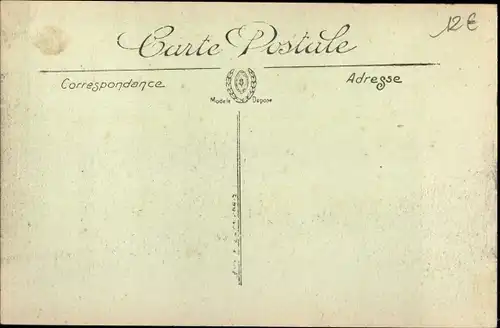 12€
Carte Postale
Correspondance
Adresse
Modèle Déposé